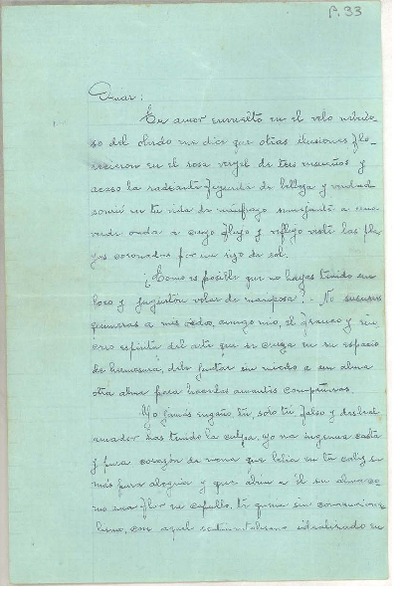 P. 33
Omar:
Tu amor envuelto en el velo nebulo-
so del olvido me dice que otras ilusiones flo-
recieron en el rosa vergel de tus ensueños y
acaso la radiante leyenda de belleza y verdad
sonrió en tu vida de náufrago semejante a una
verde onda a cuyo flujo y reflujo vesti las pla-
yas coronadas por un rizo de sol.
¿Como es posible que no hayas tenido un
loco y juguetón volar de mariposa? No susurres
quimeras a mis oidos, amigo mio, el franco y sin-
cero espíritu del arte que se en su espacio
de hermosura, debe juntar sin miedo a un alma
otra alma para hacerlas amantes compañeras.
Yo jamás engaño, tú, solo tú, falso y desleal
amador has tenido la culpa, yo no ingenua casta
y puro corazón de nena que bebia en tu caliz su
más pura alegria y que abria a él su alma co-
mo una flor en capullo, te queria sin
con aquel sentimentalismo idealizado en